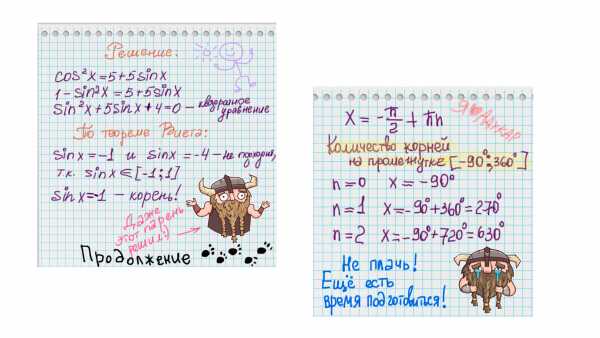 Решение:
cos²x=5+5sinx
1-sin²x=5+5sinx
sin²x+5sinx+4=0 - квадратное
уравнение
По теореме Виета:
sinx=-1 и sinx=-4-не подходит,
т.к. sinx∈[-1;1]
sinx=-1 - корень!
Даже
этот парень
решил:)
Продолжение
x=-π/2+πn
Количество корней
на промежутке [-90°;360°]
n=0 x=-90°
n=1 x=-90°+360°=270°
n=2 x=-90°+720°=630°
Не плачь!
Ещё есть
время подготовиться!